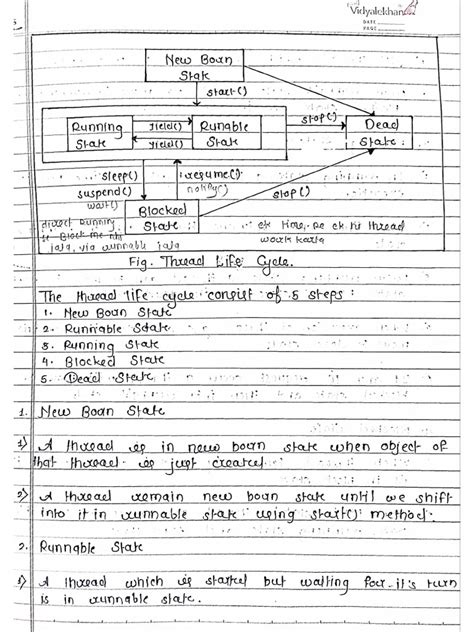 Vidyalekhan
DATE
PAGE
New Boan
State
start()
Running
State
yield()
yield()
Runable
State
stop()
Dead
State
sleep()
suspend()
wait()
resume()
notify()
stop()
Blocked
State
direct Running
se Block me nhi
jata, via runnable jata
ek time pe ek hi thread
work karta
Fig. Thread Life Cycle.
The thread life cycle consist of 5 steps :
1. New Boan State
2. Runnable State
3. Running State
4. Blocked State
5. Dead State
1. New Boan State
1) A thread is in new born state when object of
that thread is just created.
2) A thread remain new born state until we shift
into it in runnable state using start() method.
2. Runnable State
1) A thread which is started but waiting for it's turn
is in runnable state.